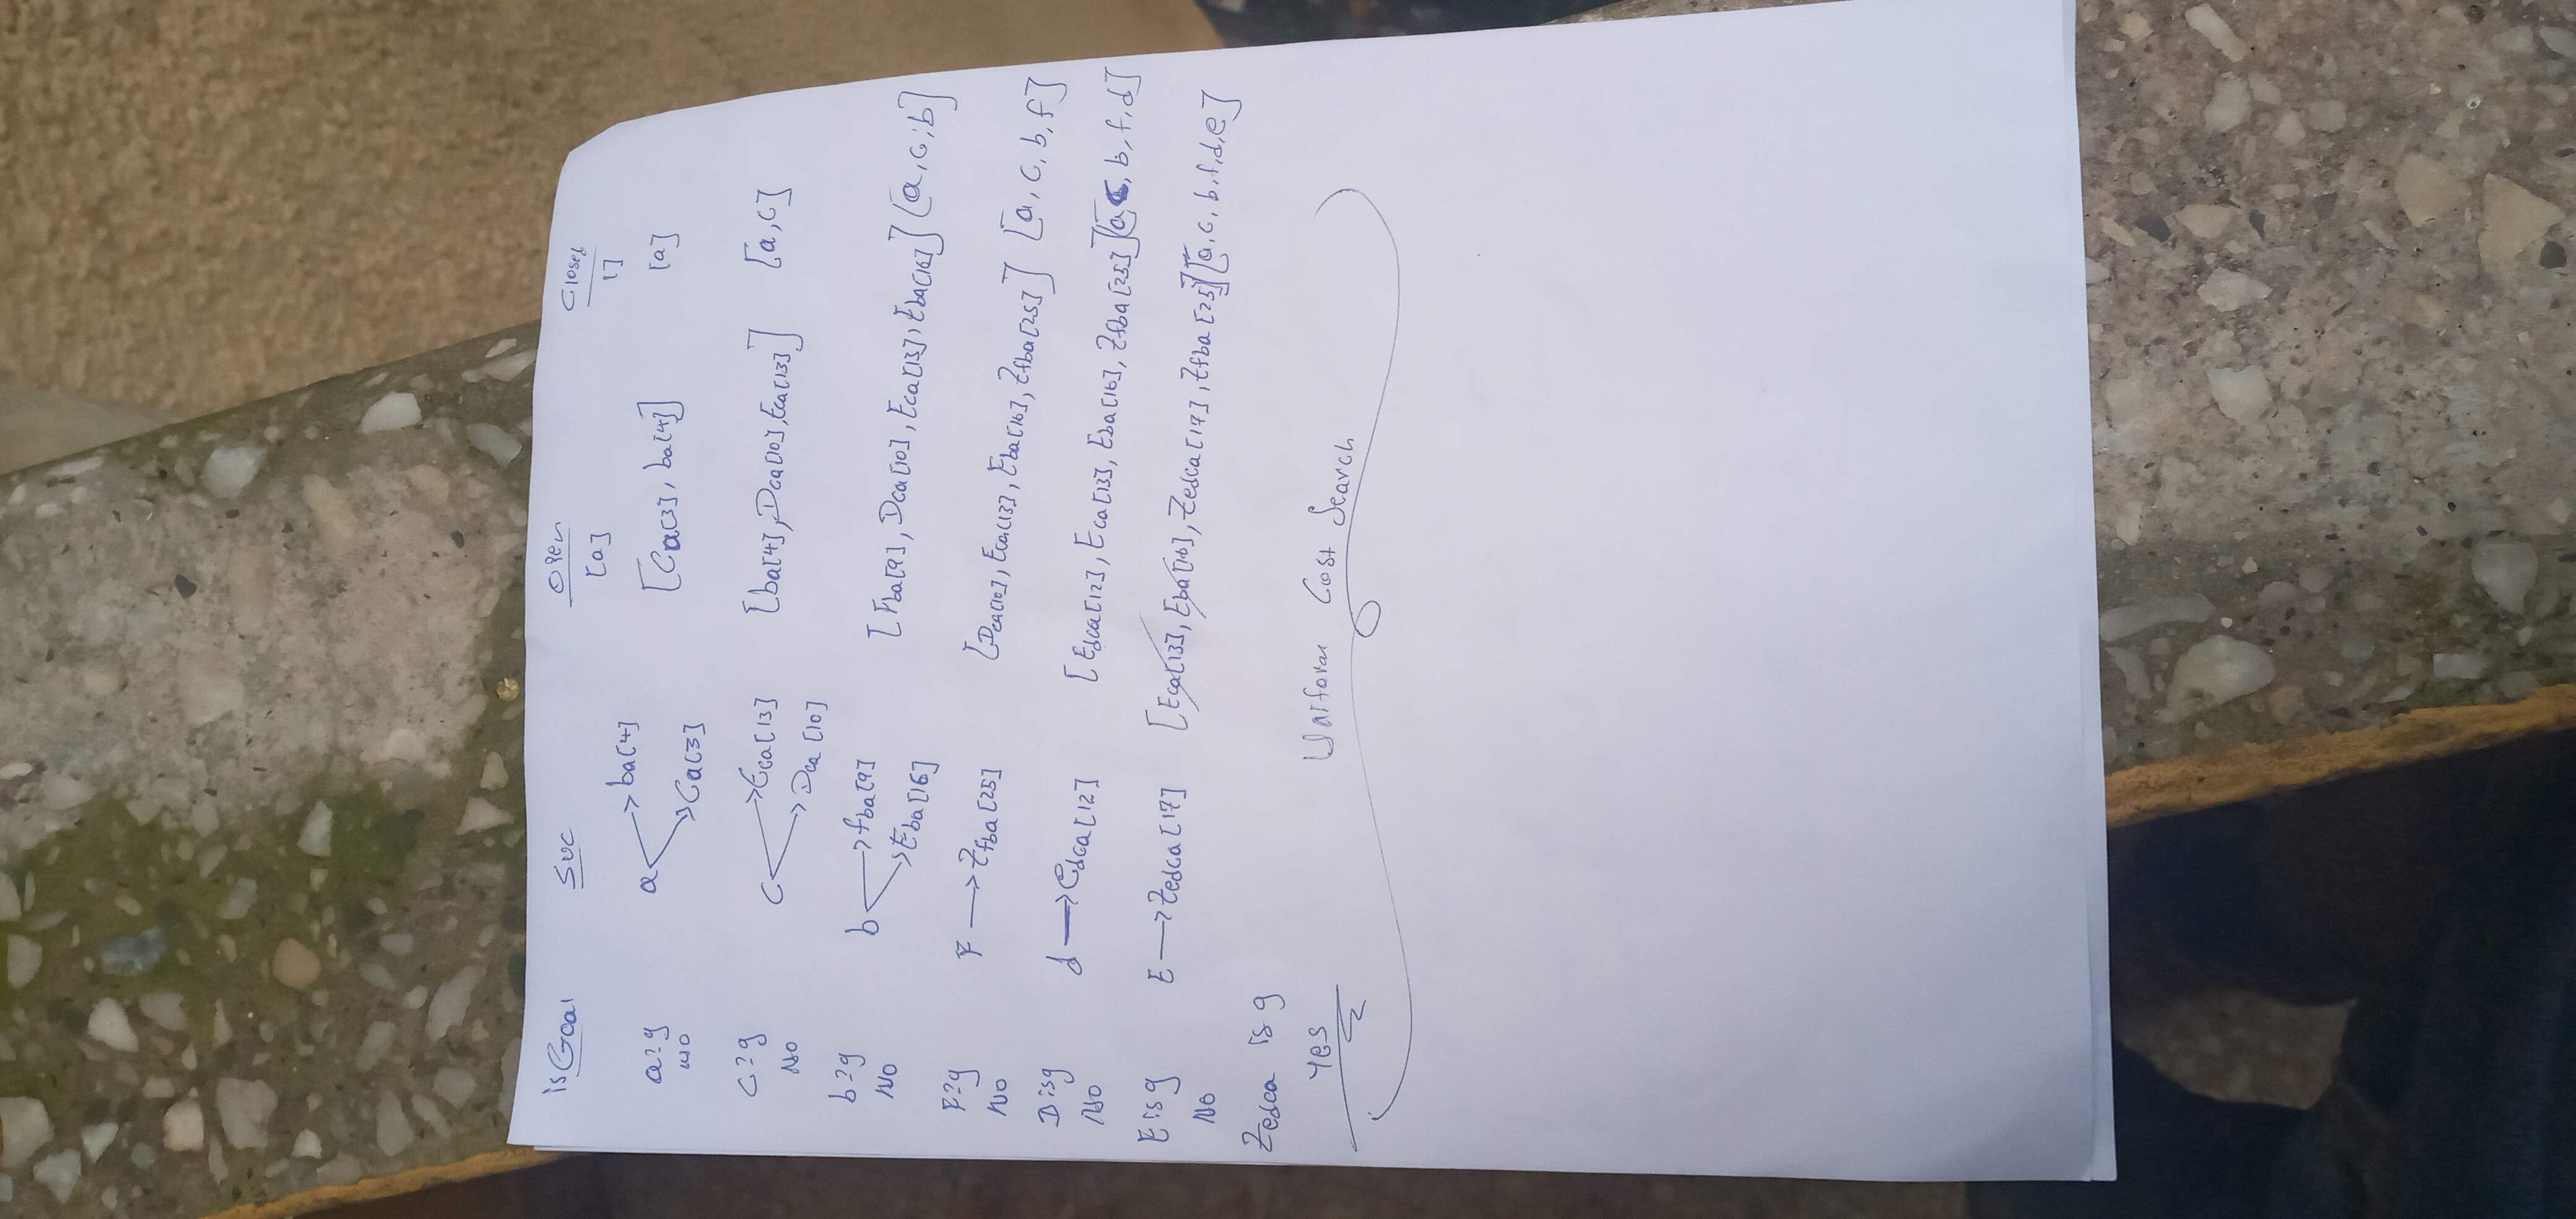 isGoal Suc Open Closed
[a] []
a?g a → ba[4] [Ca[3], ba[4]] [a]
NO → Ca[3]
C?g C → Eca[13] [ba[4], Dca[10], Eca[13]] [a,c]
NO → Dca [10]
b?g b → fba[9] [Fba[9], Dca[10], Eca[13], Eba[16]] [a,c,b]
NO → Eba[16]
F?g F → Zfba[25] [Dca[10], Eca[13], Eba[16], Zfba[25]] [a, c, b, f]
NO
D isg d → edca[12] [Edca[12], Eca[13], Eba[16], Zfba[25]] [a c, b, f, d]
NO
E is g E → Zedca[17] [Eca[13], Eba[16], Zedca[17], Zfba[25]] [a, c, b, f, d, e]
NO
Zedca is g
Yes Uniform Cost Search